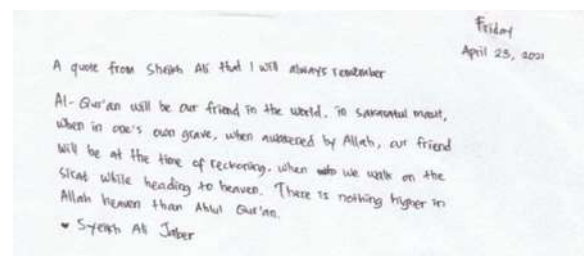 Friday
April 23, 2021
A quote from Sheikh Ali that I will always remember
Al-Qur'an will be our friend in the world, in sakaratul maut,
when in one's own grave, when awakened by Allah, our friend
will be at the time of reckoning, when we walk on the
sirat while heading to heaven. There is nothing higher in
Allah heaven than Ahlul Qur'an.
♥ Syeikh Ali Jaber